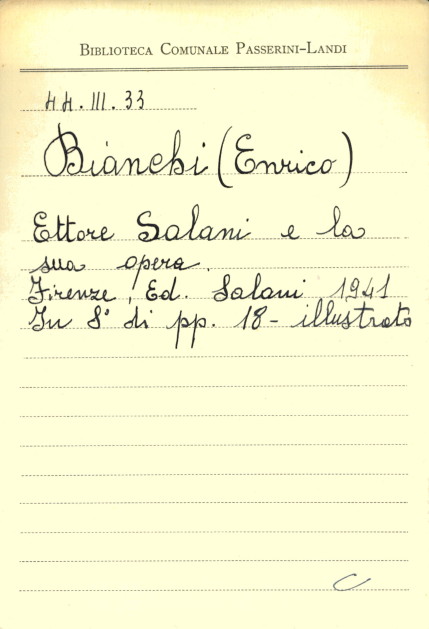 BIBLIOTECA COMUNALE PASSERINI-LANDI
44.III.33
Bianchi (Enrico)
Ettore Salani e la
sua opera.
Firenze, Ed. Salani 1941
In 8° di pp. 18 - illustrato
C